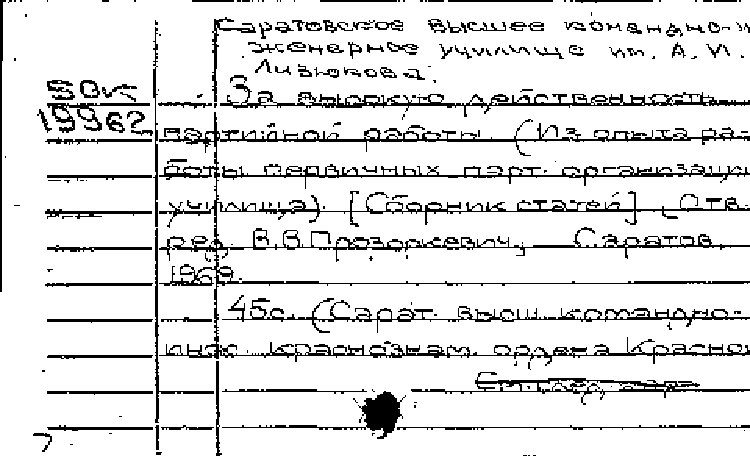 Саратовское высшее командно-и
женерное училище им. А. И.
Лизюкова.
SOK
19962
За высокую действенность
партийной работы. (Из опыта раб
боты первичных парт. организаци
училища). [Сборник статей]. (Отв.
ред. В.В. Прозоркевич,. Саратов,
1969.
45с. (Сарат. высш. командно-
инж. Краснознам. ордена Красной